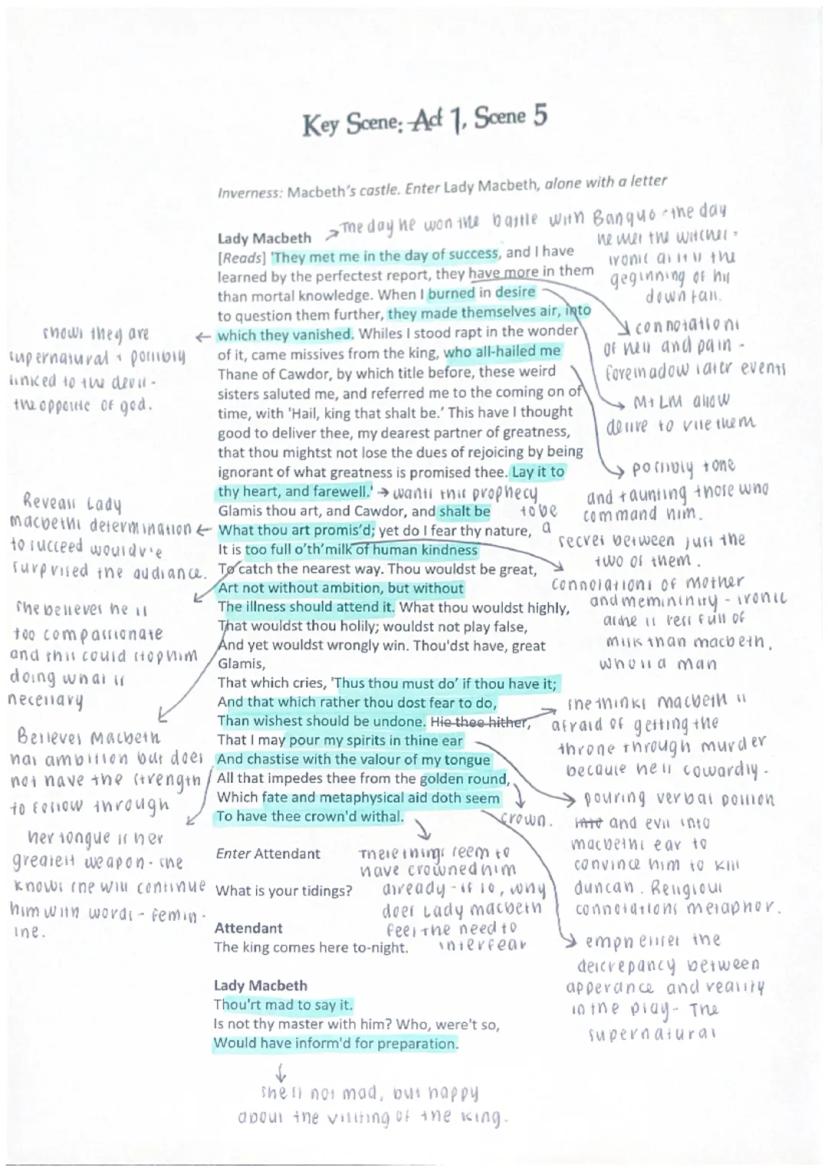 Key Scene: Act 1, Scene 5
Inverness: Macbeth's castle. Enter Lady Macbeth, alone with a letter
Lady Macbeth
[Reads] 'They met me in the day of success, and I have
learned by the perfectest report, they have more in them
than mortal knowledge. When I burned in desire
to question them further, they made themselves air, into
which they vanished. Whiles I stood rapt in the wonder
of it, came missives from the king, who all-hailed me
Thane of Cawdor, by which title before, these weird
sisters saluted me, and referred me to the coming on of
time, with 'Hail, king that shalt be.' This have I thought
good to deliver thee, my dearest partner of greatness,
that thou mightst not lose the dues of rejoicing by being
ignorant of what greatness is promised thee. Lay it to
thy heart, and farewell.'
Glamis thou art, and Cawdor, and shalt be
What thou art promis'd; yet do I fear thy nature,
It is too full o'th'milk of human kindness
To catch the nearest way. Thou wouldst be great,
Art not without ambition, but without
The illness should attend it. What thou wouldst highly,
That wouldst thou holily; wouldst not play false,
And yet wouldst wrongly win. Thou'dst have, great
Glamis,
That which cries, 'Thus thou must do' if thou have it;
And that which rather thou dost fear to do,
Than wishest should be undone. Hie thee hither,
That I may pour my spirits in thine ear
And chastise with the valour of my tongue
All that impedes thee from the golden round,
Which fate and metaphysical aid doth seem
To have thee crown'd withal.
Enter Attendant
What is your tidings?
Attendant
The king comes here to-night.
Lady Macbeth
Thou'rt mad to say it.
Is not thy master with him? Who, were't so,
Would have inform'd for preparation.
The day he won the battle with Banquo - the day
he met the witches -
ironic as it is the
geginning of his
downfall.
connotations
of hell and pain -
foreshadow later events
M + LM allow
desire to rule them
possibly tone
and taunting those who
command him.
→ wants this prophecy
to be
a
secret between just the
two of them.
connotations of mother
and memininity - ironic
as she is less full of
milk than macbeth,
who is a man
she thinks macbeth is
afraid of getting the
throne through murder
because he is cowardly.
pouring verbal poison
and evil into
macbeths ear to
convince him to kill
duncan. Religious
connotations metaphor.
crown.
emphesises the
descrepancy between
apperance and reality
in the play - The
supernatural
shows they are
supernatural + possibly
linked to the devil -
the opposite of god.
Reveals Lady
macbeths determination
to succeed would've
surprised the audiance.
she believes he is
too compassionate
and this could stop him
doing what is
necessary
Believes Macbeth
has ambition but does
not have the strength
to follow through
her tongue is her
greatest weapon - she
knows she will continue
him with words - femin-
ine.
These things seem to
have crowned him
already - if so, why
does Lady macbeth
feel the need to
interfear
she is not mad, but happy
about the visiting of the king.